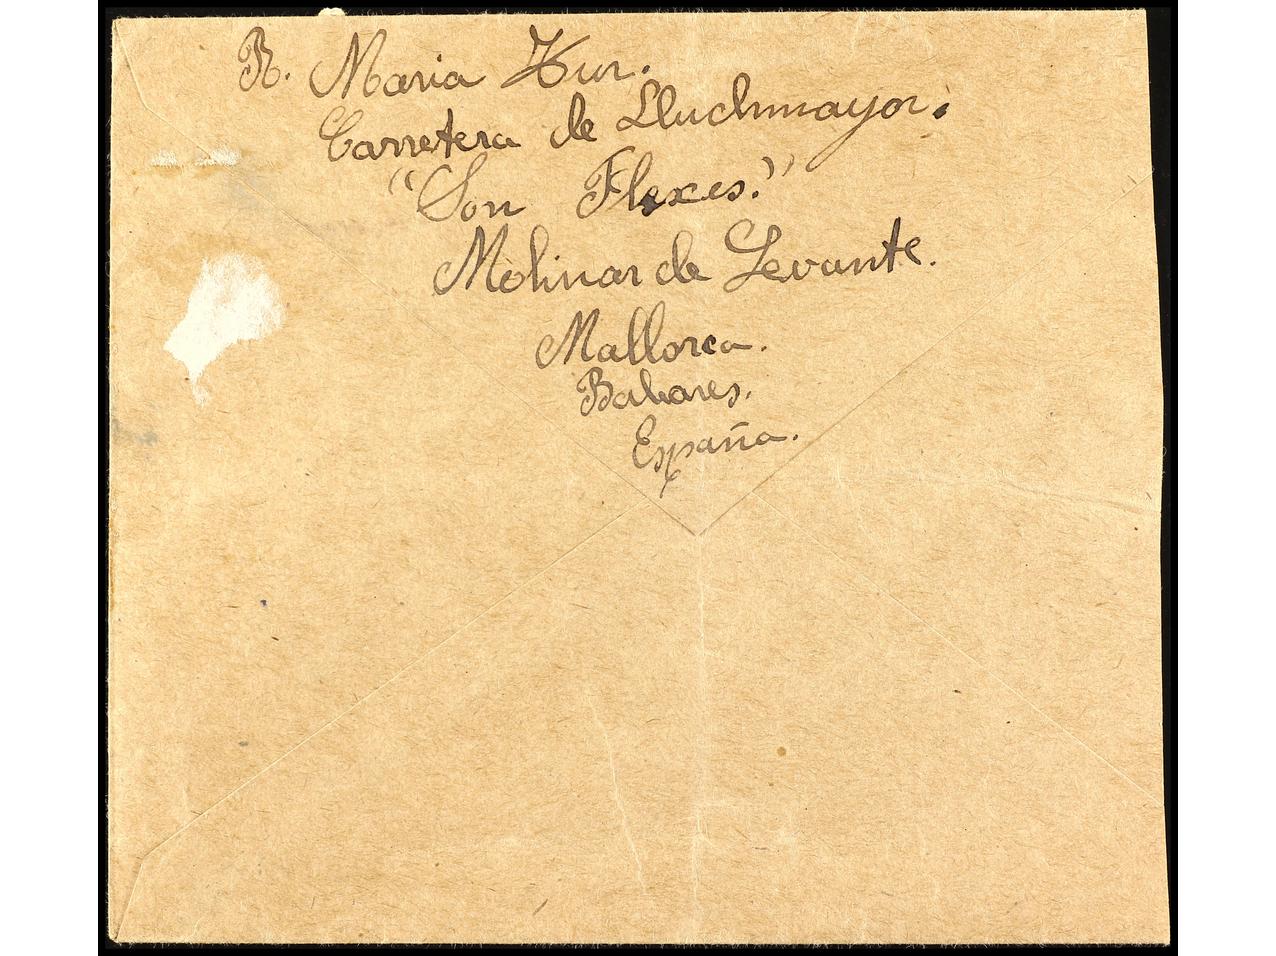 R. Maria Hur.
Carretera de Lluchmayor.
"Son Flexes."
Molinar de Levante.
Mallorca.
Baleares.
España.